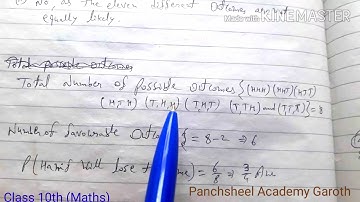 (i) No, as the eleven different Outcomes are not
equally likely.
Made with KINEMASTER
Total possible outcomes
Total Number of Possible Outcomes {(HHH) (HHT) (HTT)
(H,T,H) (T,H,H) (T,H,T) (T,TH) and (TT,T)} = 8
Number of favourable Outcomes} = 8-2 => 6
P(Hanif will lose the game) = 6/8 => 3/4 Ans
Class 10th (Maths)
Panchsheel Academy Garoth